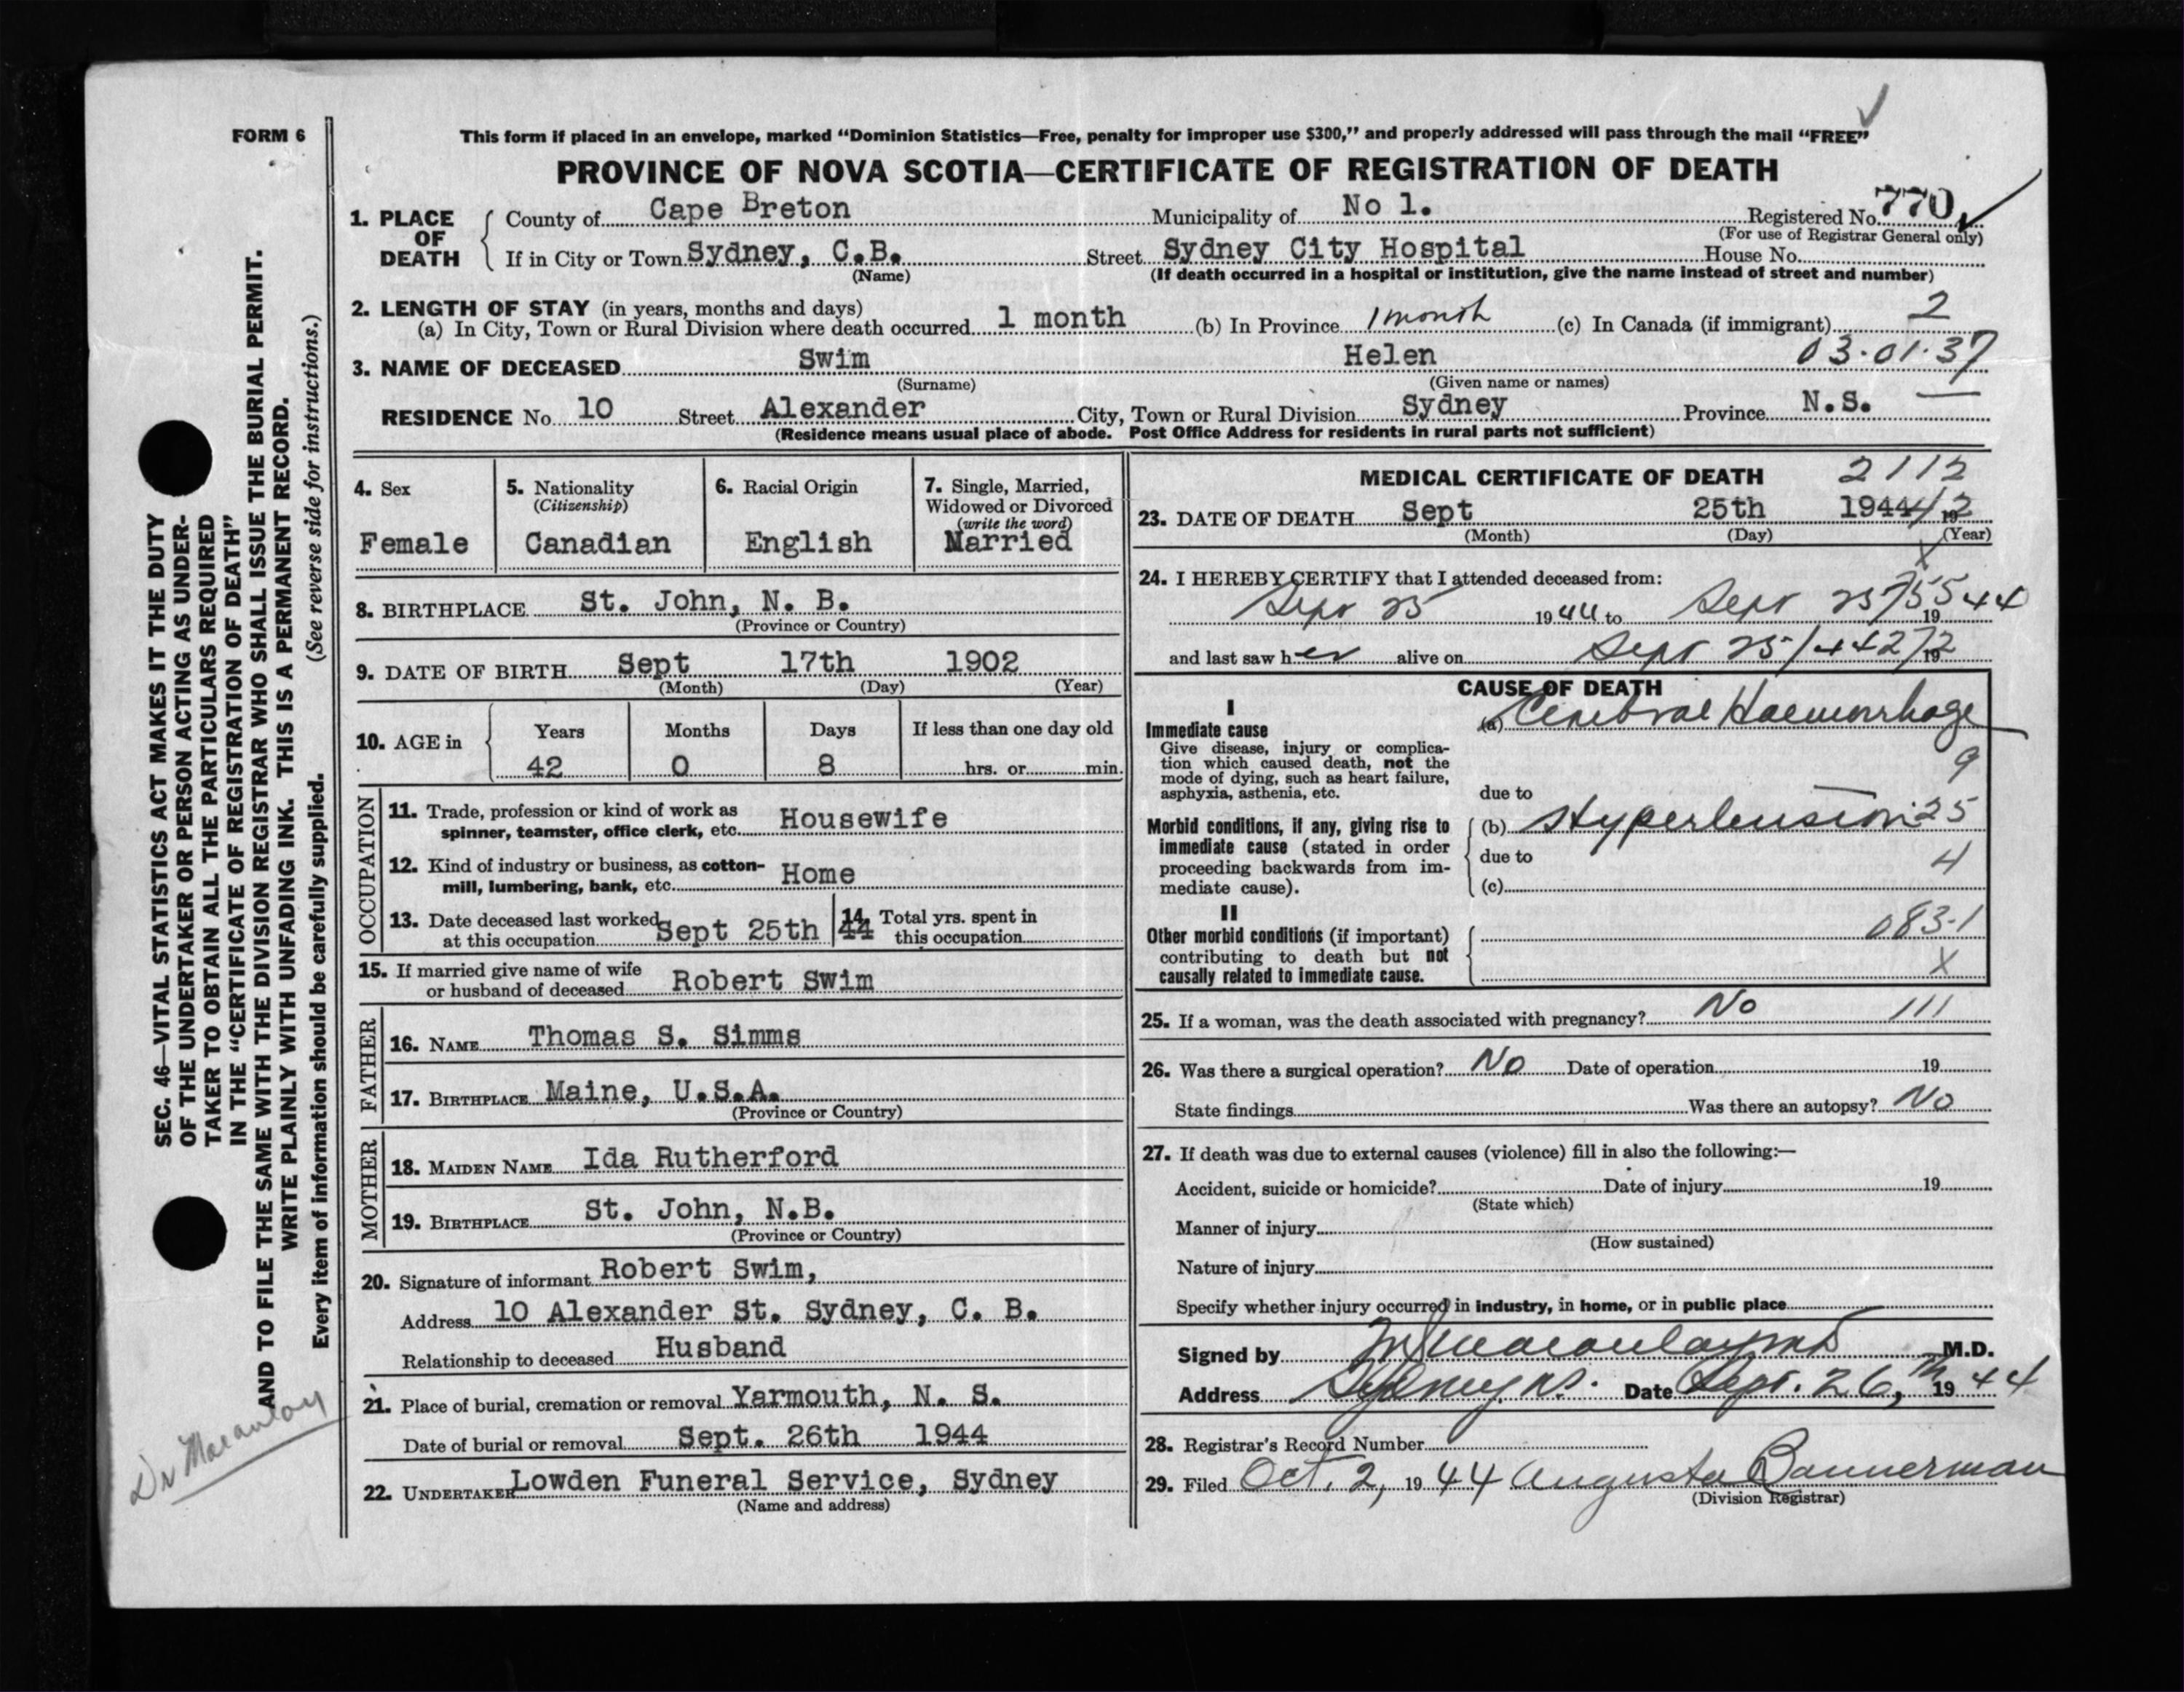 FORM 6
This form if placed in an envelope, marked “Dominion Statistics—Free, penalty for improper use $300,” and properly addressed will pass through the mail “FREE”
PROVINCE OF NOVA SCOTIA—CERTIFICATE OF REGISTRATION OF DEATH
1. PLACE OF DEATH
County of Cape Breton Municipality of No 1. Registered No. 770
(For use of Registrar General only)
If in City or Town Sydney, C.B. Street Sydney City Hospital House No.
(Name) (If death occurred in a hospital or institution, give the name instead of street and number)
2. LENGTH OF STAY (in years, months and days)
(a) In City, Town or Rural Division where death occurred 1 month (b) In Province 1 month (c) In Canada (if immigrant) 2
3. NAME OF DECEASED Swim Helen 03·01·37
(Surname) (Given name or names)
RESIDENCE No. 10 Street Alexander City, Town or Rural Division Sydney Province N.S.
(Residence means usual place of abode. Post Office Address for residents in rural parts not sufficient)
4. Sex
Female
5. Nationality
(Citizenship)
Canadian
6. Racial Origin
English
7. Single, Married,
Widowed or Divorced
(write the word)
Married
8. BIRTHPLACE St. John, N. B.
(Province or Country)
9. DATE OF BIRTH Sept 17th 1902
(Month) (Day) (Year)
10. AGE in Years Months Days If less than one day old
42 0 8 hrs. or min.
OCCUPATION
11. Trade, profession or kind of work as
spinner, teamster, office clerk, etc. Housewife
12. Kind of industry or business, as cotton-
mill, lumbering, bank, etc. Home
13. Date deceased last worked
at this occupation Sept 25th 44
14. Total yrs. spent in
this occupation
15. If married give name of wife
or husband of deceased Robert Swim
FATHER
16. NAME Thomas S. Simms
17. BIRTHPLACE Maine, U.S.A.
(Province or Country)
MOTHER
18. MAIDEN NAME Ida Rutherford
19. BIRTHPLACE St. John, N.B.
(Province or Country)
20. Signature of informant Robert Swim,
Address 10 Alexander St. Sydney, C. B.
Relationship to deceased Husband
21. Place of burial, cremation or removal Yarmouth, N. S.
Date of burial or removal Sept. 26th 1944
22. UNDERTAKER Lowden Funeral Service, Sydney
(Name and address)
MEDICAL CERTIFICATE OF DEATH 2112
23. DATE OF DEATH Sept 25th 1944
(Month) (Day) (Year)
24. I HEREBY CERTIFY that I attended deceased from:
Sept 25 1944 to Sept 25 19 44
and last saw her alive on Sept 25/44 19
CAUSE OF DEATH
I
Immediate cause
Give disease, injury or complica-
tion which caused death, not the
mode of dying, such as heart failure,
asphyxia, asthenia, etc.
(a) Cerebral Haemorrhage
9
due to
Morbid conditions, if any, giving rise to
immediate cause (stated in order
proceeding backwards from im-
mediate cause).
(b) Hypertension 25
due to 4
(c)
II
Other morbid conditions (if important)
contributing to death but not
causally related to immediate cause.
083-1
X
25. If a woman, was the death associated with pregnancy? No 111
26. Was there a surgical operation? No Date of operation 19
State findings Was there an autopsy? No
27. If death was due to external causes (violence) fill in also the following:—
Accident, suicide or homicide? Date of injury 19
(State which)
Manner of injury
(How sustained)
Nature of injury
Specify whether injury occurred in industry, in home, or in public place
Signed by Macaulay M.D.
Address Sydney N.S. Date Sept. 26, th 19 44
28. Registrar's Record Number
29. Filed Oct. 2, 19 44 Augusta Bannerman
(Division Registrar)
SEC. 46—VITAL STATISTICS ACT MAKES IT THE DUTY
OF THE UNDERTAKER OR PERSON ACTING AS UNDER-
TAKER TO OBTAIN ALL THE PARTICULARS REQUIRED
IN THE “CERTIFICATE OF REGISTRATION OF DEATH”
AND TO FILE THE SAME WITH THE DIVISION REGISTRAR WHO SHALL ISSUE THE BURIAL PERMIT.
WRITE PLAINLY WITH UNFADING INK. THIS IS A PERMANENT RECORD.
Every item of information should be carefully supplied. (See reverse side for instructions.)
Dr Macaulay